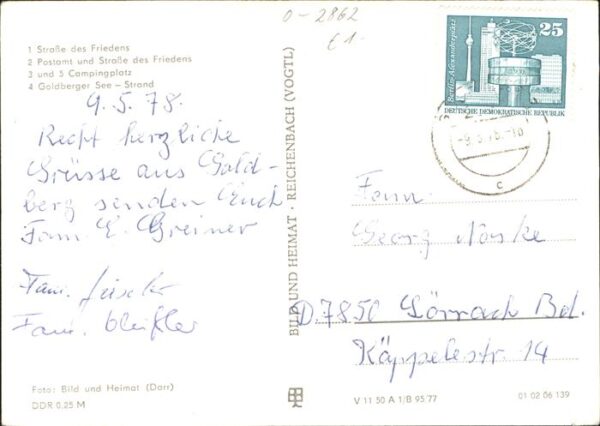 0-2862
€1-
1 Straße des Friedens
2 Postamt und Straße des Friedens
3 und 5 Campingplatz
4 Goldberger See – Strand
9.5.78.
Recht herzliche
Grüsse aus Gold-
berg senden Euch
Fam. E. Greiner
Fam.
Fam.
Foto: Bild und Heimat (Darr)
DDR 0,25 M
BILD UND HEIMAT · REICHENBACH (VOGTL)
Berlin-Alexanderplatz
25
DEUTSCHE DEMOKRATISCHE REPUBLIK
-9.5.78.-18
c
Fam.
Georg Noske
D.7850 Lörrach Bd.
Käppelestr. 14
V 11 50 A 1/B 95 77
01 02 06 139